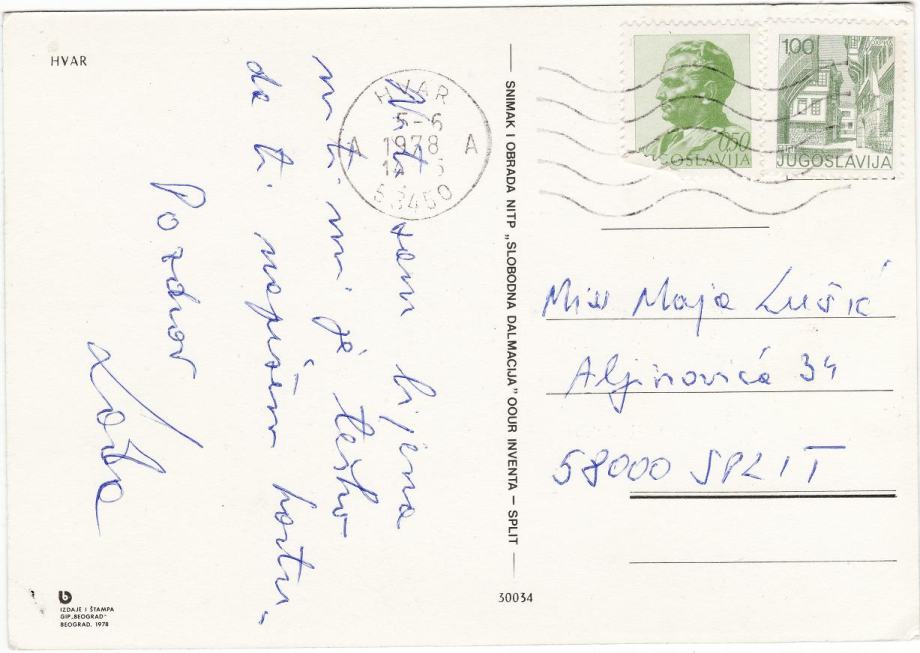 HVAR
Niti sam lijena
niti mi je teško
da ti napišem kartu.
Pozdrav
HVAR
5-6
1978
A A
58450
0,50
JUGOSLAVIJA
1,00
JUGOSLAVIJA
SNIMAK I OBRADA NITP „SLOBODNA DALMACIJA" OOUR INVENTA – SPLIT
Miss Maja Lušić
Aljinovića 34
58000 SPLIT
IZDAJE I ŠTAMPA
GIP„BEOGRAD"
BEOGRAD, 1978
30034